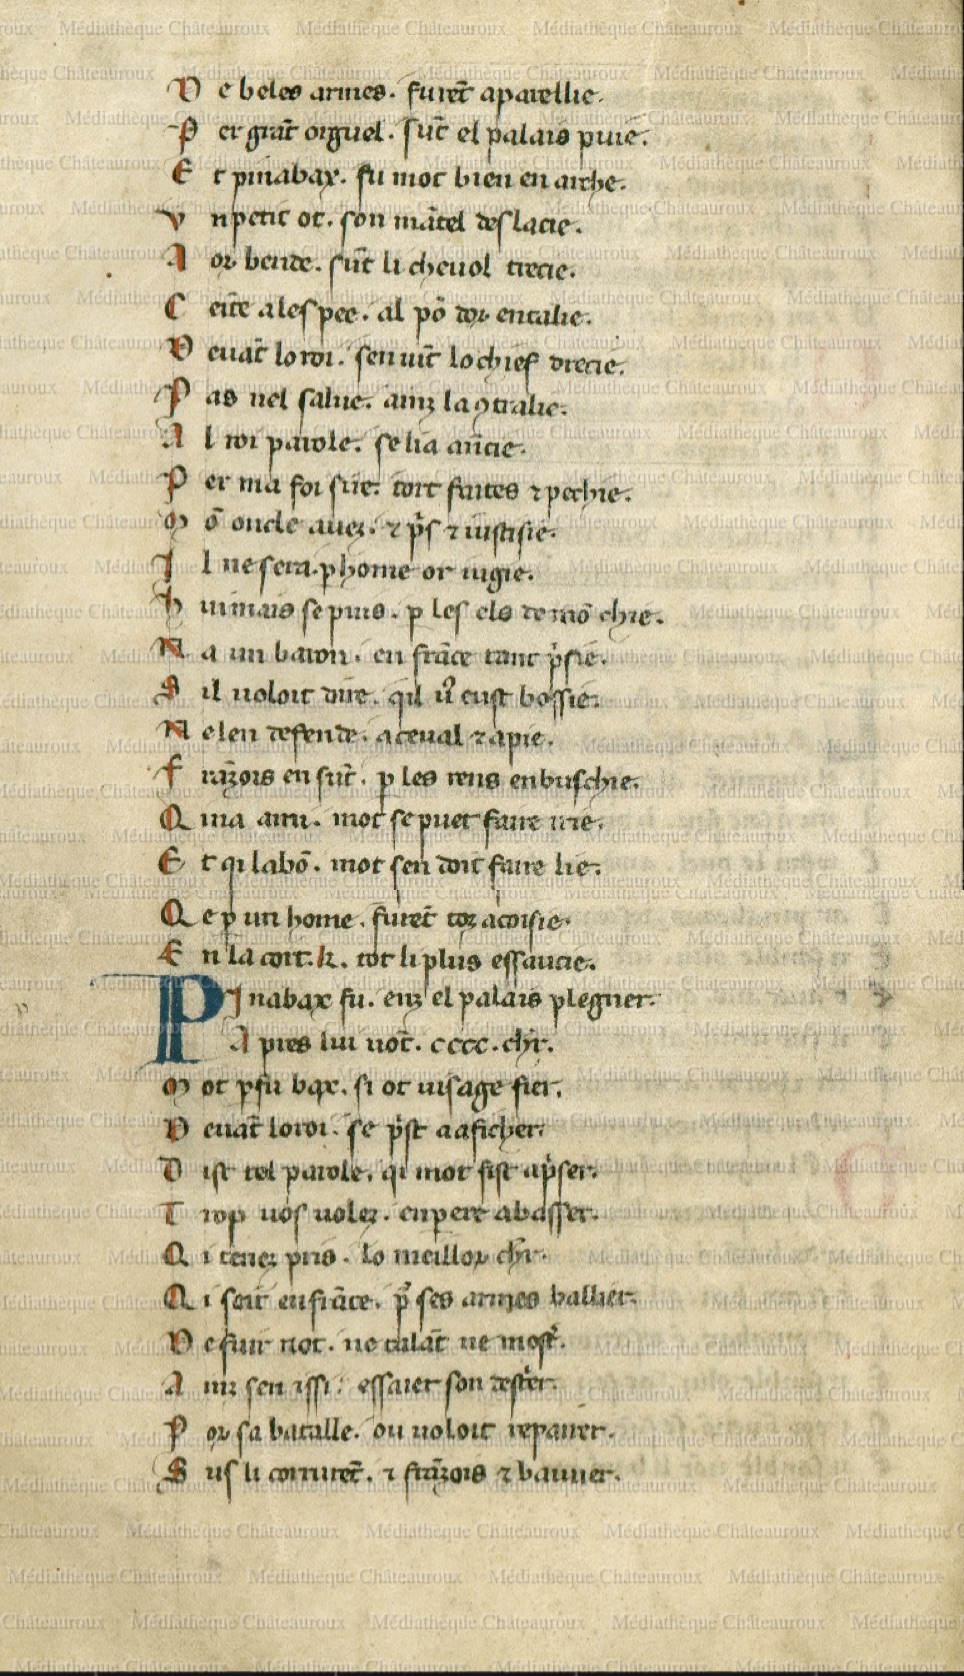 D e beles armes. furēt aparellie.
P er grāt orguel. sūt el palais puie.
E t pinabax. fu mot bien en airhe.
V n petit ot. son mātel deslacie.
A or bende. sūt li chevol trecie.
C eīte a lespee. al pō dor entalie.
D evāt lo roi. sen vīt lo chief drecie.
P as nel salue. ainz la ꝯtralie.
A l roi parole. se li a ān̄cie.
P er ma foi sire. tort faites ⁊ pechie.
M ō oncle avez. ⁊ p̄s ⁊ iustisie.
I l ne sera. ꝑ home or iugie.
H uimais se puis. ꝑ les els de mō chie.
N a un baron. en frāce tant p̄sie.
S il voloit dire. qil u͛ eust bossie.
N e len defende. a ceval ⁊ a pie.
F rāzois en sūt. ꝑ les rens enbuschie.
Q ui a ami. mot se puet faire irie.
E t qi la bō. mot sen doit faire lie.
Q e ꝑ un home. furēt toz acoisie.
E n la cort. k. tot li plus essaucie.
P I nabax fu. enz el palais plegner.
A pres lui vōt. cccc. chr̄.
M ot ꝑ fu bax. si ot visage fier.
D evāt lo roi. se p̄st a aficher.
D ist tel parole. qi mot fist a p̄ser.
T rop vos volez. enpere abasser.
Q i tenez pris. lo meillor chr̄.
Q i soit en frāce. p͛ ses armes ballier.
D e fuir not. ne talāt ne most͛.
A inz sen issi. essaier son dest͛er.
P or sa batalle. ou voloit repairer.
S us li corrurēt. ⁊ frāzois ⁊ baivier.